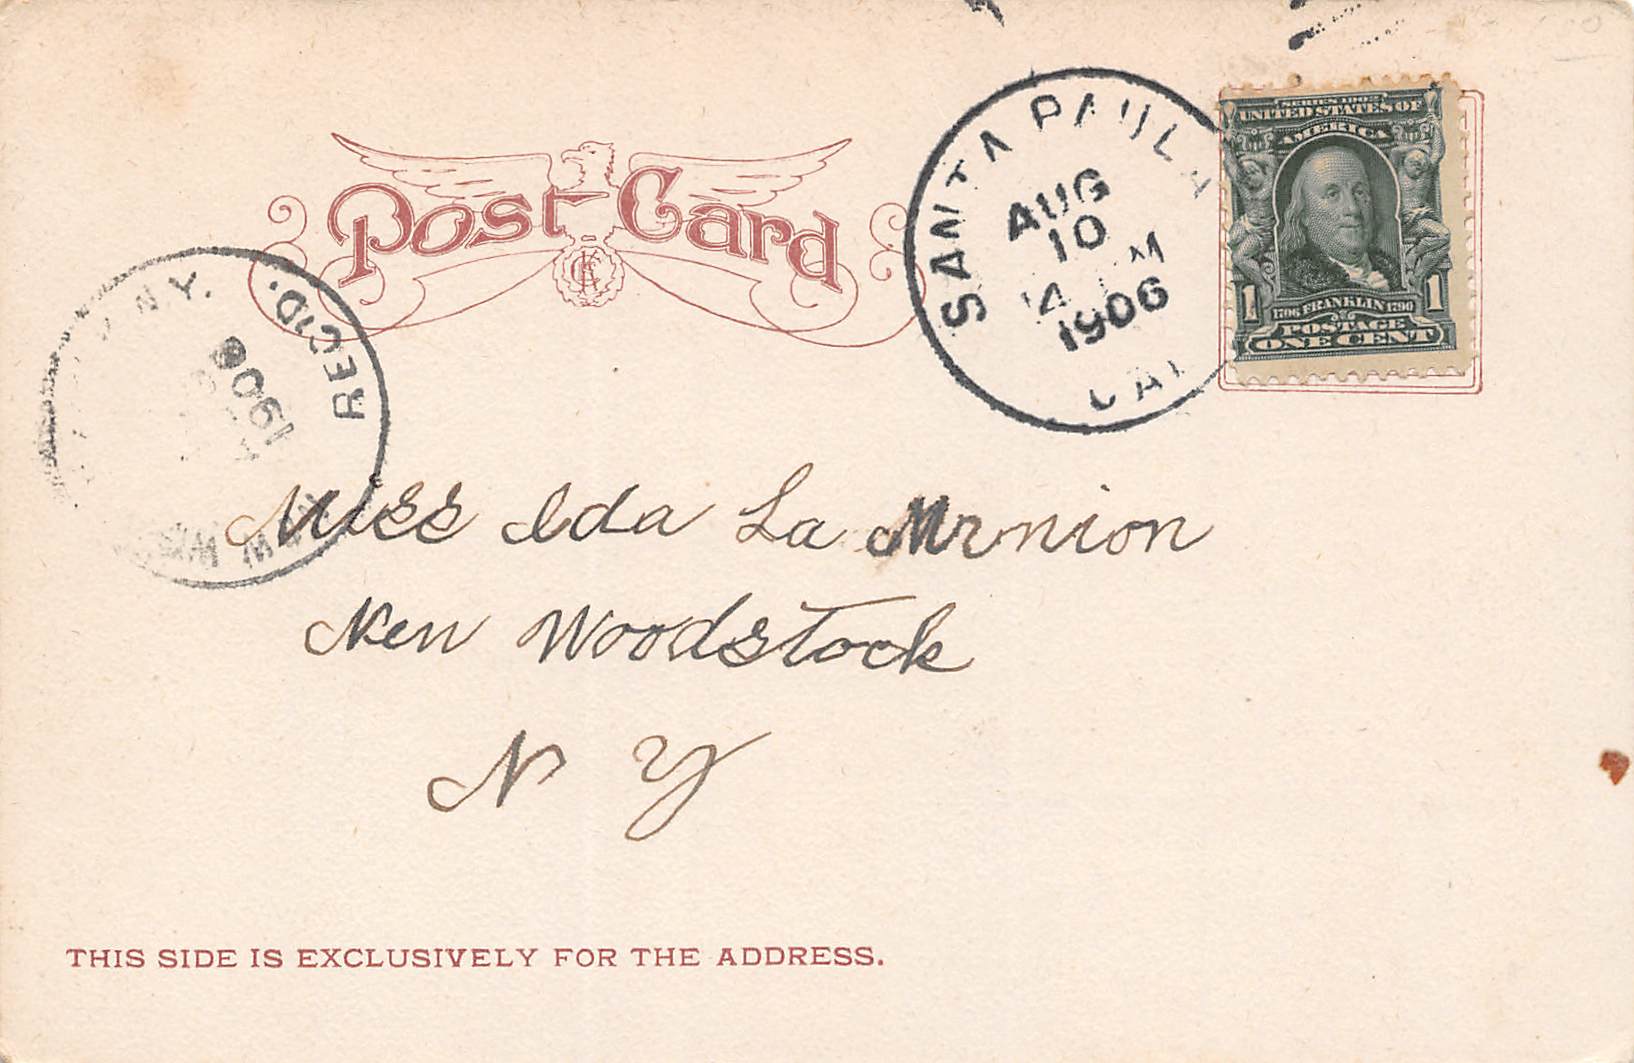 Post Card
SANTA PAULA
AUG
10
4 M
1906
CAL
SERIES 1902
UNITED STATES OF
AMERICA
1 1
1706 FRANKLIN 1790
POSTAGE
ONE CENT
N.Y.
REC'D.
1906
NEW
Miss Ida La Mrnion
New Woodstock
N Y
THIS SIDE IS EXCLUSIVELY FOR THE ADDRESS.